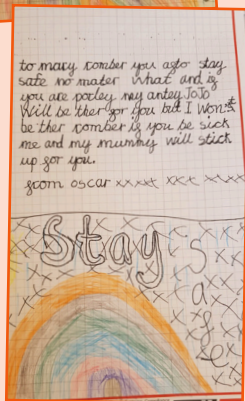 to mary comber you agto stay
safe no mater what and if
you are porley my antey JoJo
Will be ther for you but I Won't
be ther comber if you be sick
me and my mummy will stick
up for you.
from oscar xxxx xxx xxxxx
Stay
safe